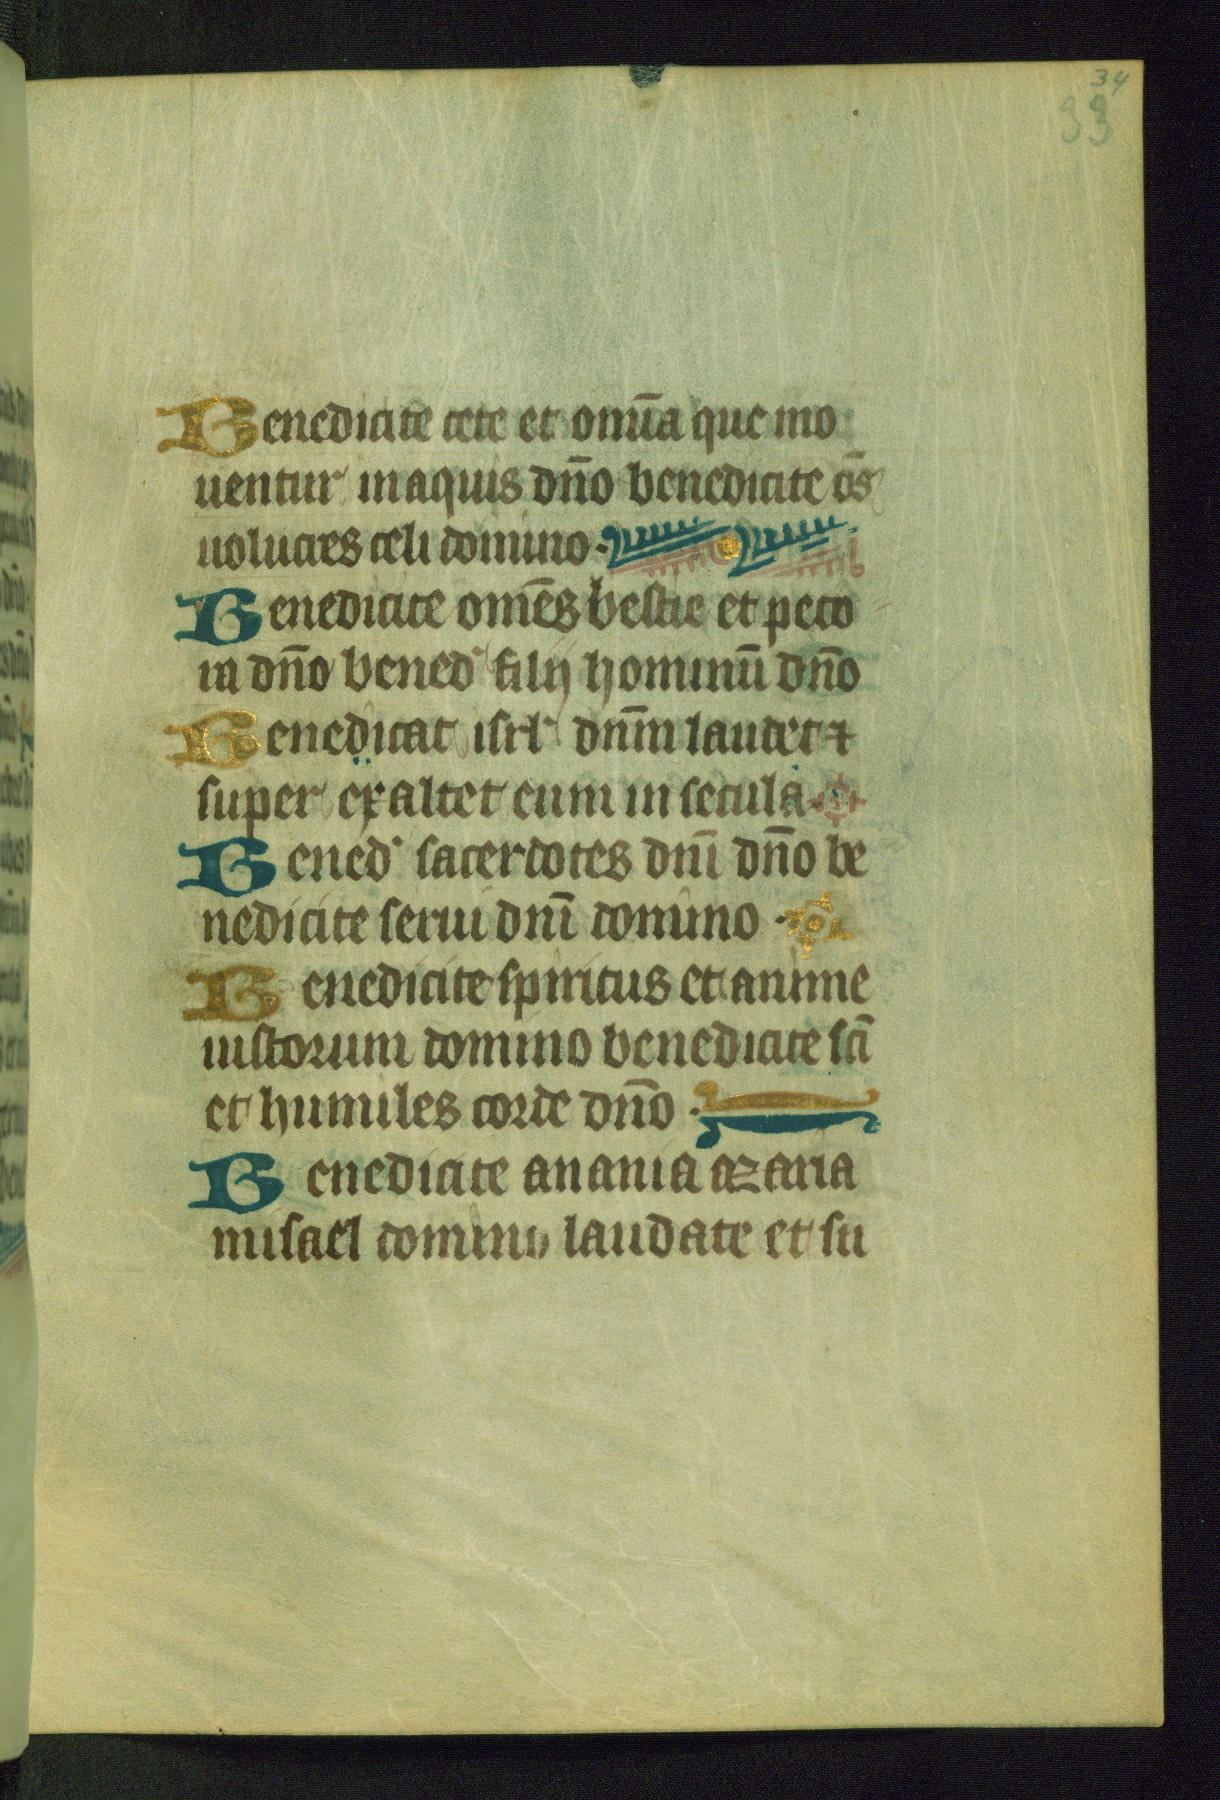 34
33
Benedicite cete et omīa que mo
uentur in aquis dn̄o benedicite om̄s
uolucres celi domino
Benedicite omēs bestie et peco
ra dn̄o bened' filij hominū dn̄o
Benedicat isrl' dnm̄ laudet ⁊
super exaltet eum in secula
Bened' sacerdotes dnī dn̄o be
nedicite serui dnī domino
Benedicite spiritus et anime
iustorum domino benedicite sc̄i
et humiles corde dn̄o
Benedicite anania azaria
misael domino laudate et su